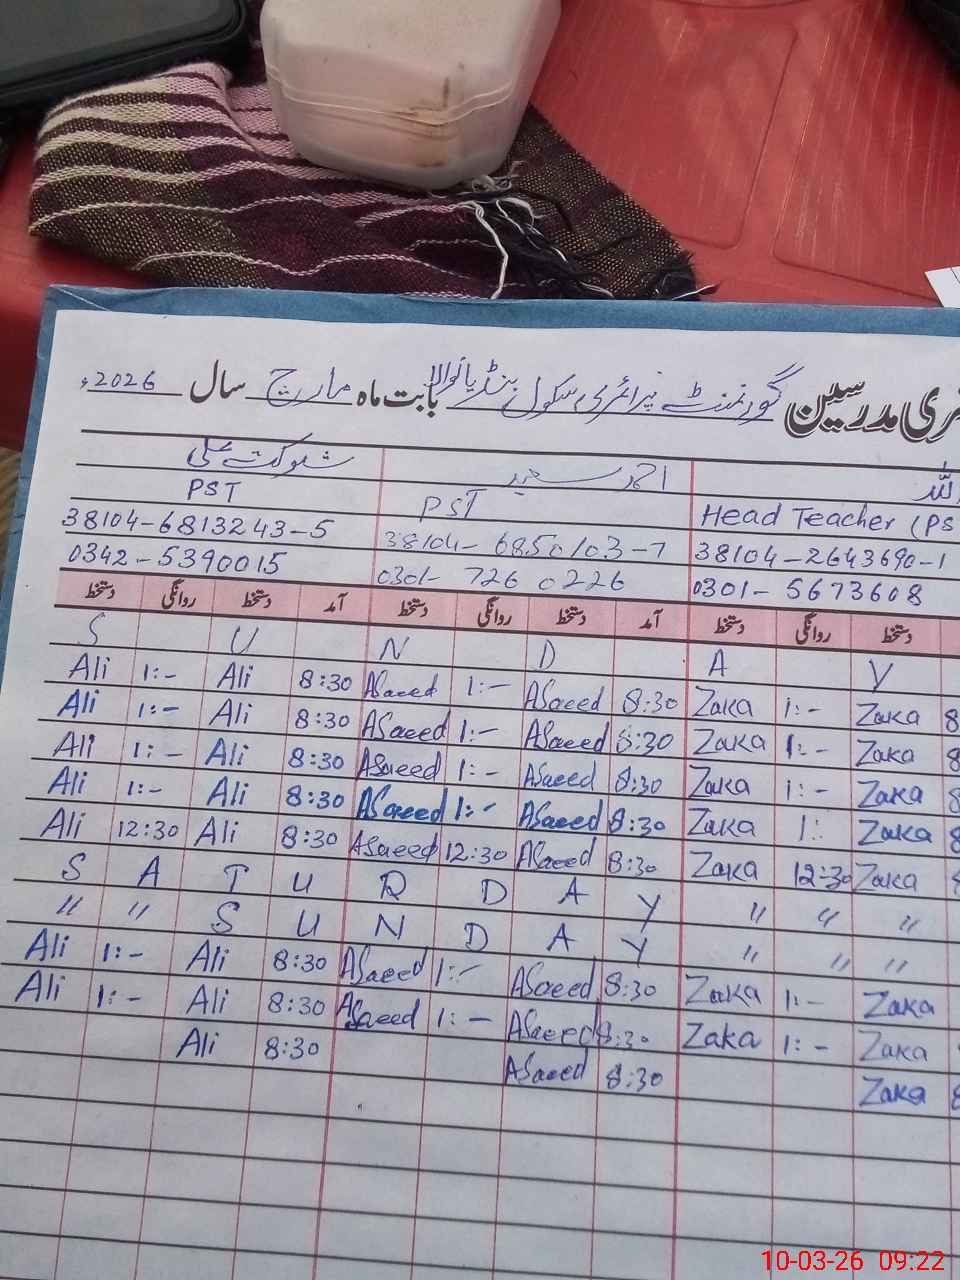 ری مدرسین گورنمنٹ پرائمری سکول بنڈیانوالا بابت ماہ مارچ سال 2026ء
اللہ احمد سعید شوکت علی
Head Teacher (PS PST PST
38104-2643690-1 38104-6850103-7 38104-6813243-5
0301-5673608 0301-7260226 0342-5390015
دستخط روانگی دستخط آمد دستخط روانگی دستخط آمد دستخط روانگی دستخط
S U N D A Y
Ali 1:- Ali 8:30 ASaeed 1:- ASaeed 8:30 Zaka 1:- Zaka 8
Ali 1:- Ali 8:30 ASaeed 1:- ASaeed 8:30 Zaka 1:- Zaka 8
Ali 1:- Ali 8:30 ASaeed 1:- ASaeed 8:30 Zaka 1:- Zaka 8
Ali 1:- Ali 8:30 ASaeed 1:- ASaeed 8:30 Zaka 1: Zaka 8
Ali 12:30 Ali 8:30 ASaeed 12:30 ASaeed 8:30 Zaka 12:30 Zaka 8
S A T U R D A Y " " "
" " S U N D A Y " " "
Ali 1:- Ali 8:30 ASaeed 1:- ASaeed 8:30 Zaka 1:- Zaka
Ali 1:- Ali 8:30 ASaeed 1:- ASaeed 8:30 Zaka 1:- Zaka
Ali 8:30 ASaeed 8:30 Zaka 8
10-03-26 09:22